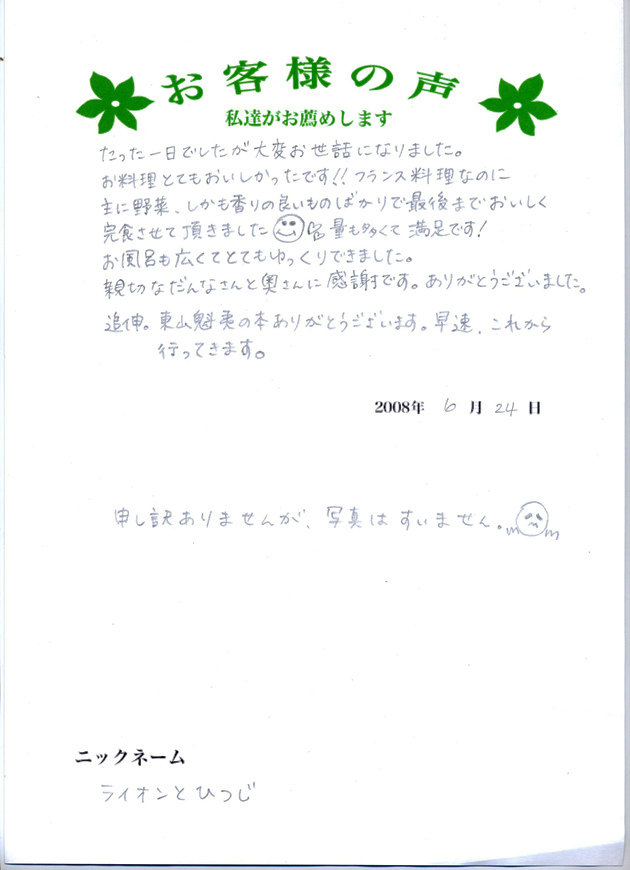 お客様の声
私達がお薦めします
たった一日でしたが大変お世話になりました。
お料理とてもおいしかったです!! フランス料理なのに
主に野菜、しかも香りの良いものばかりで最後までおいしく
完食させて頂きました 量も多くて満足です!
お風呂も広くてとてもゆっくりできました。
親切なだんなさんと奥さんに感謝です。ありがとうございました。
追伸。東山魁夷の本ありがとうございます。早速、これから
行ってきます。
2008年 6月 24日
申し訳ありませんが、写真はすいません。m m
ニックネーム
ライオンとひつじ